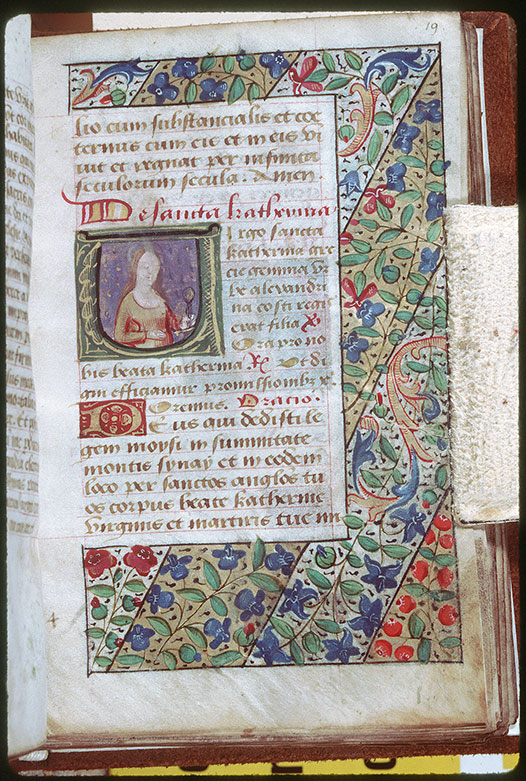 19
lio cum substancialis et coe
ternus cum eis et in eis vi
uit et regnat per infinita
seculorum secula. Amen
De sancta katherina
irgo sancta
katherina gre
cie gemma vr
be alexandri
na costi regis
erat filia
Ora pro no
bis beata katherina Ut di
gni efficiamur promissionibz
Oremus. Oracio.
Deus qui dedisti le
gem moysi in summitate
montis synay et in eodem
loco per sanctos anglos tu
os corpus beate katherine
virginis et martiris tue